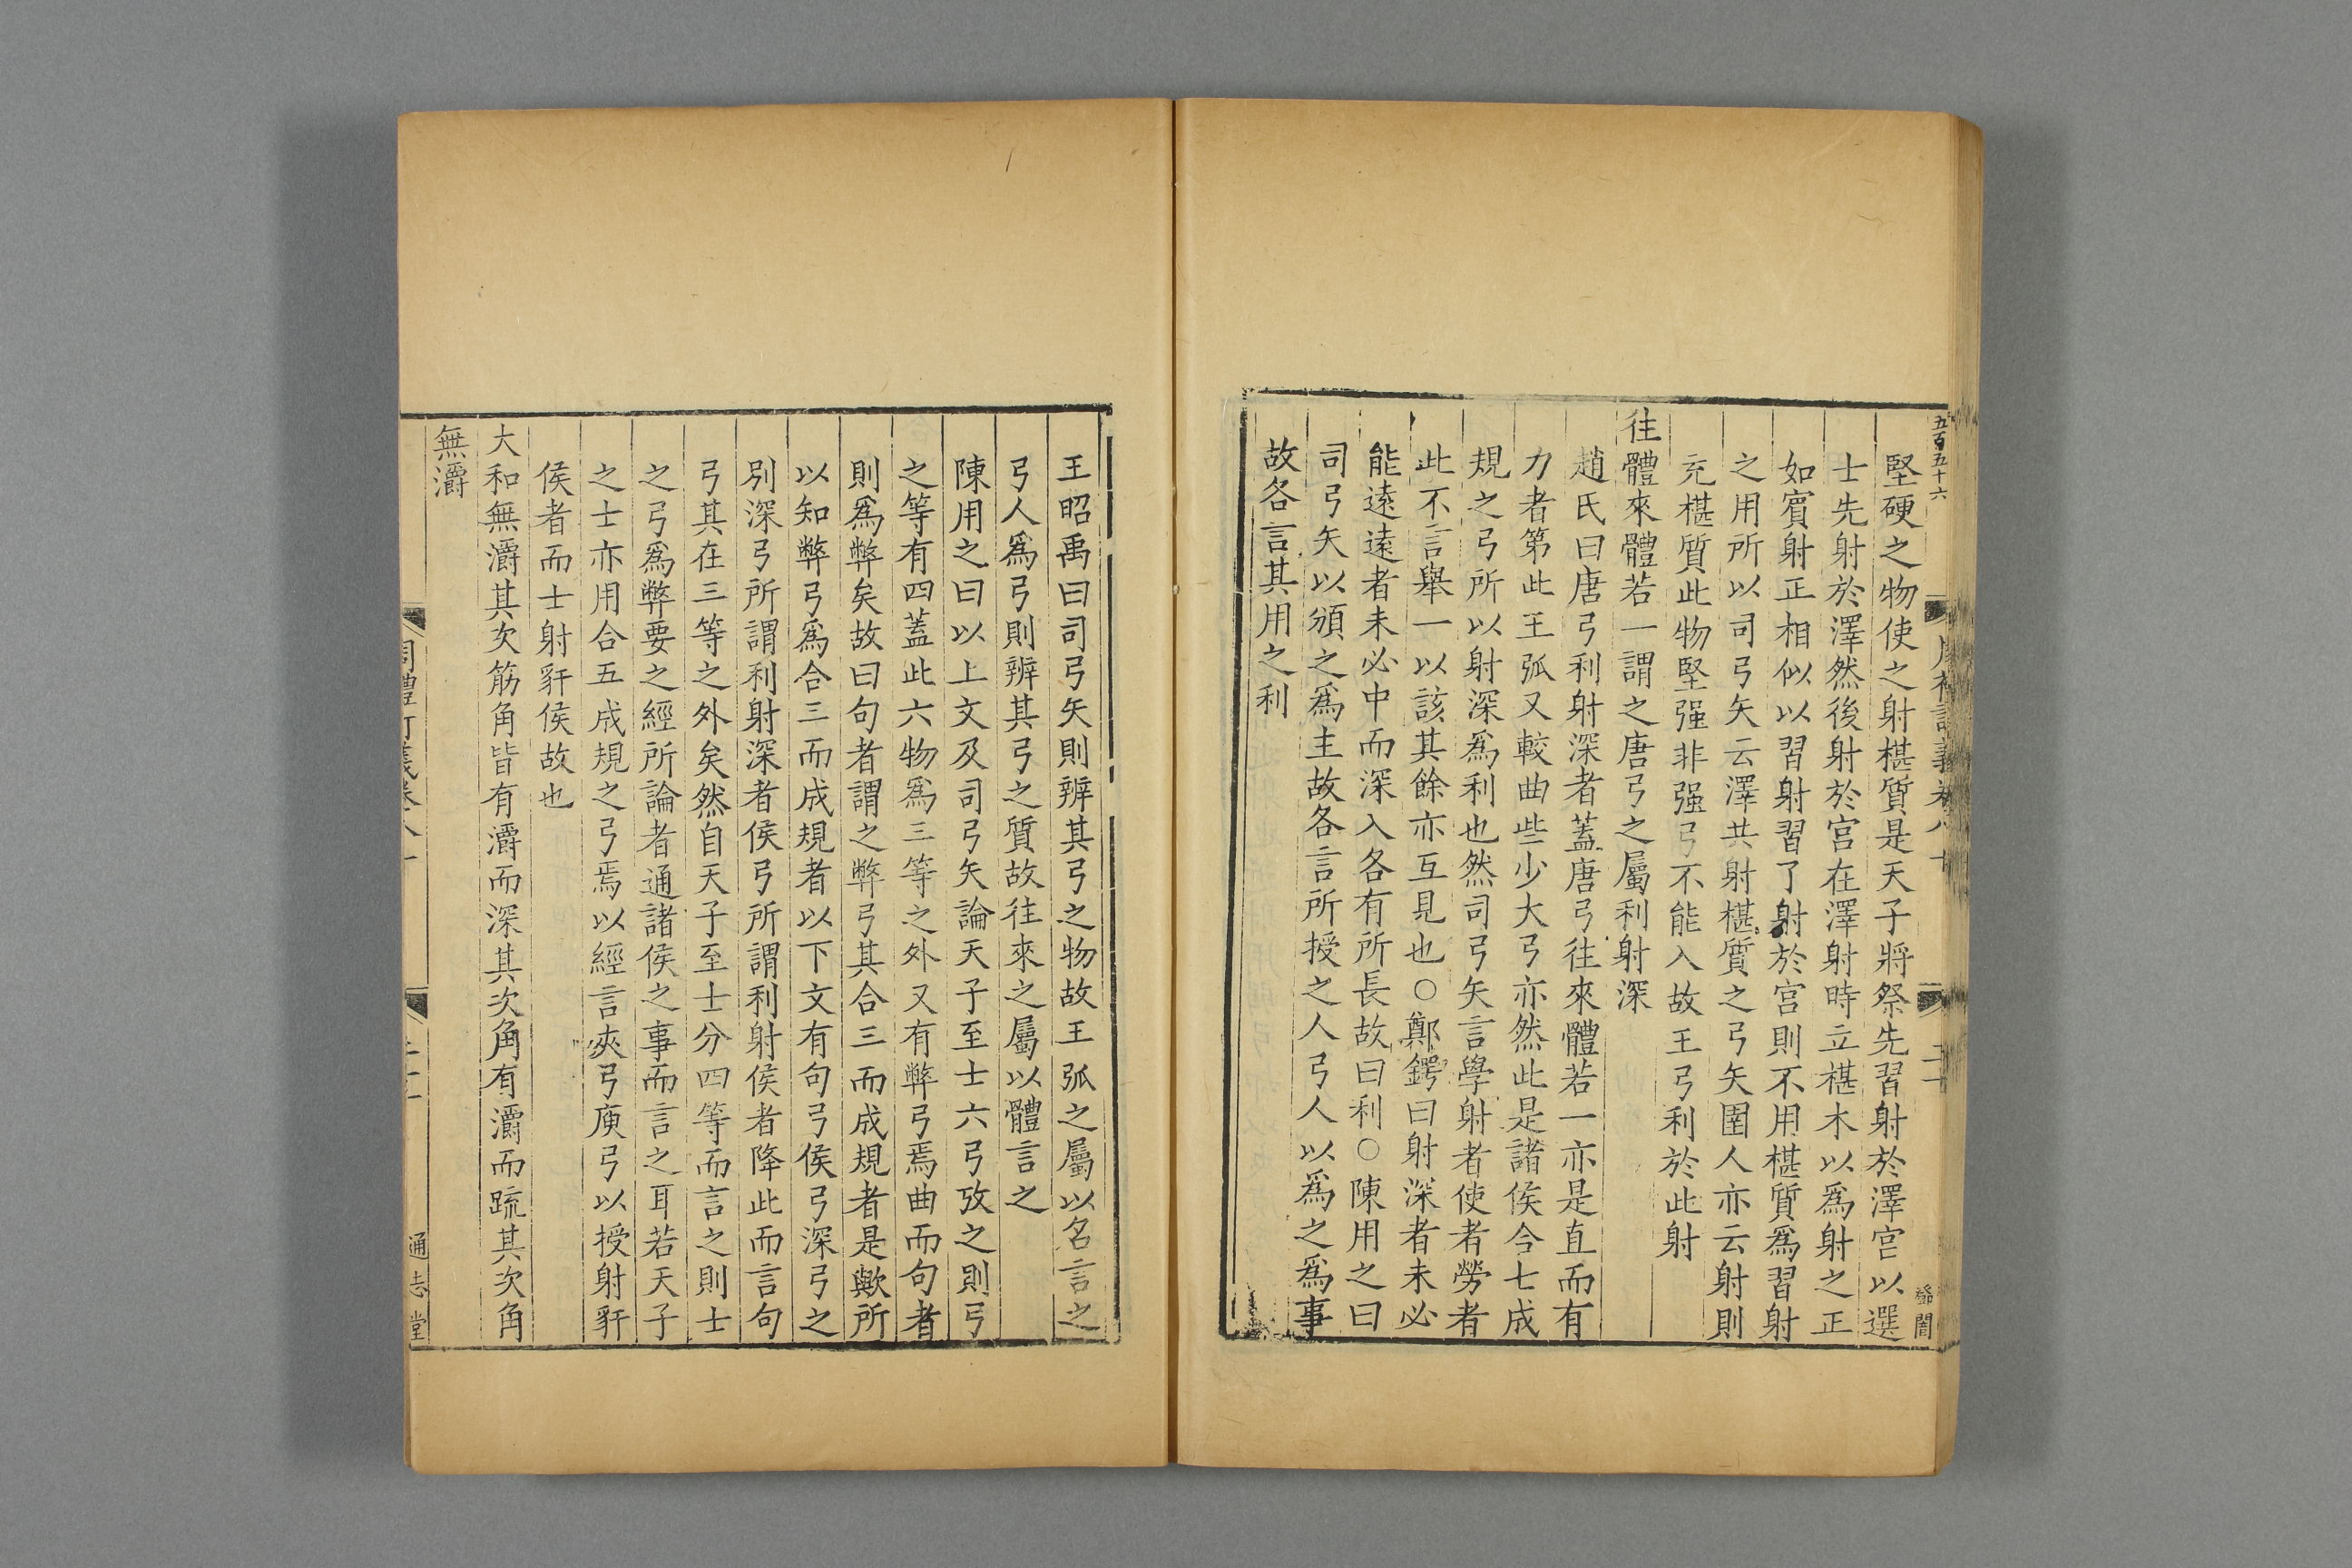 五百五十六
堅硬之物使之射椹質是天子將祭先習射於澤宮以選
士先射於澤然後射於宮在澤射時立椹木以爲射之正
如賓射正相似以習射習了射於宮則不用椹質爲習射
之用所以司弓矢云澤共射椹質之弓矢圉人亦云射則
充椹質此物堅强非强弓不能入故王弓利於此射
往體來體若一謂之唐弓之屬利射深
趙氏曰唐弓利射深者蓋唐弓往來體若一亦是直而有
力者第此王弧又較曲些少大弓亦然此是諸侯合七成
規之弓所以射深爲利也然司弓矢言學射者使者勞者
此不言舉一以該其餘亦互見也○鄭鍔曰射深者未必
能遠遠者未必中而深入各有所長故曰利○陳用之曰
司弓矢以頒之爲主故各言所授之人弓人以爲之爲事
故各言其用之利
王昭禹曰司弓矢則辨其弓之物故王弧之屬以名言之
弓人爲弓則辨其弓之質故往來之屬以體言之
陳用之曰以上文及司弓矢論天子至士六弓攷之則弓
之等有四蓋此六物爲三等之外又有弊弓焉曲而句者
則爲弊矣故曰句者謂之弊弓其合三而成規者是歟所
以知弊弓爲合三而成規者以下文有句弓侯弓深弓之
別深弓所謂利射深者侯弓所謂利射侯者降此而言句
弓其在三等之外矣然自天子至士分四等而言之則士
之弓爲弊要之經所論者通諸侯之事而言之耳若天子
之士亦用合五成規之弓焉以經言夾弓庾弓以授射豻
侯者而士射豻侯故也
大和無灂其次筋角皆有灂而深其次角有灂而疏其次角
無灂
通志堂